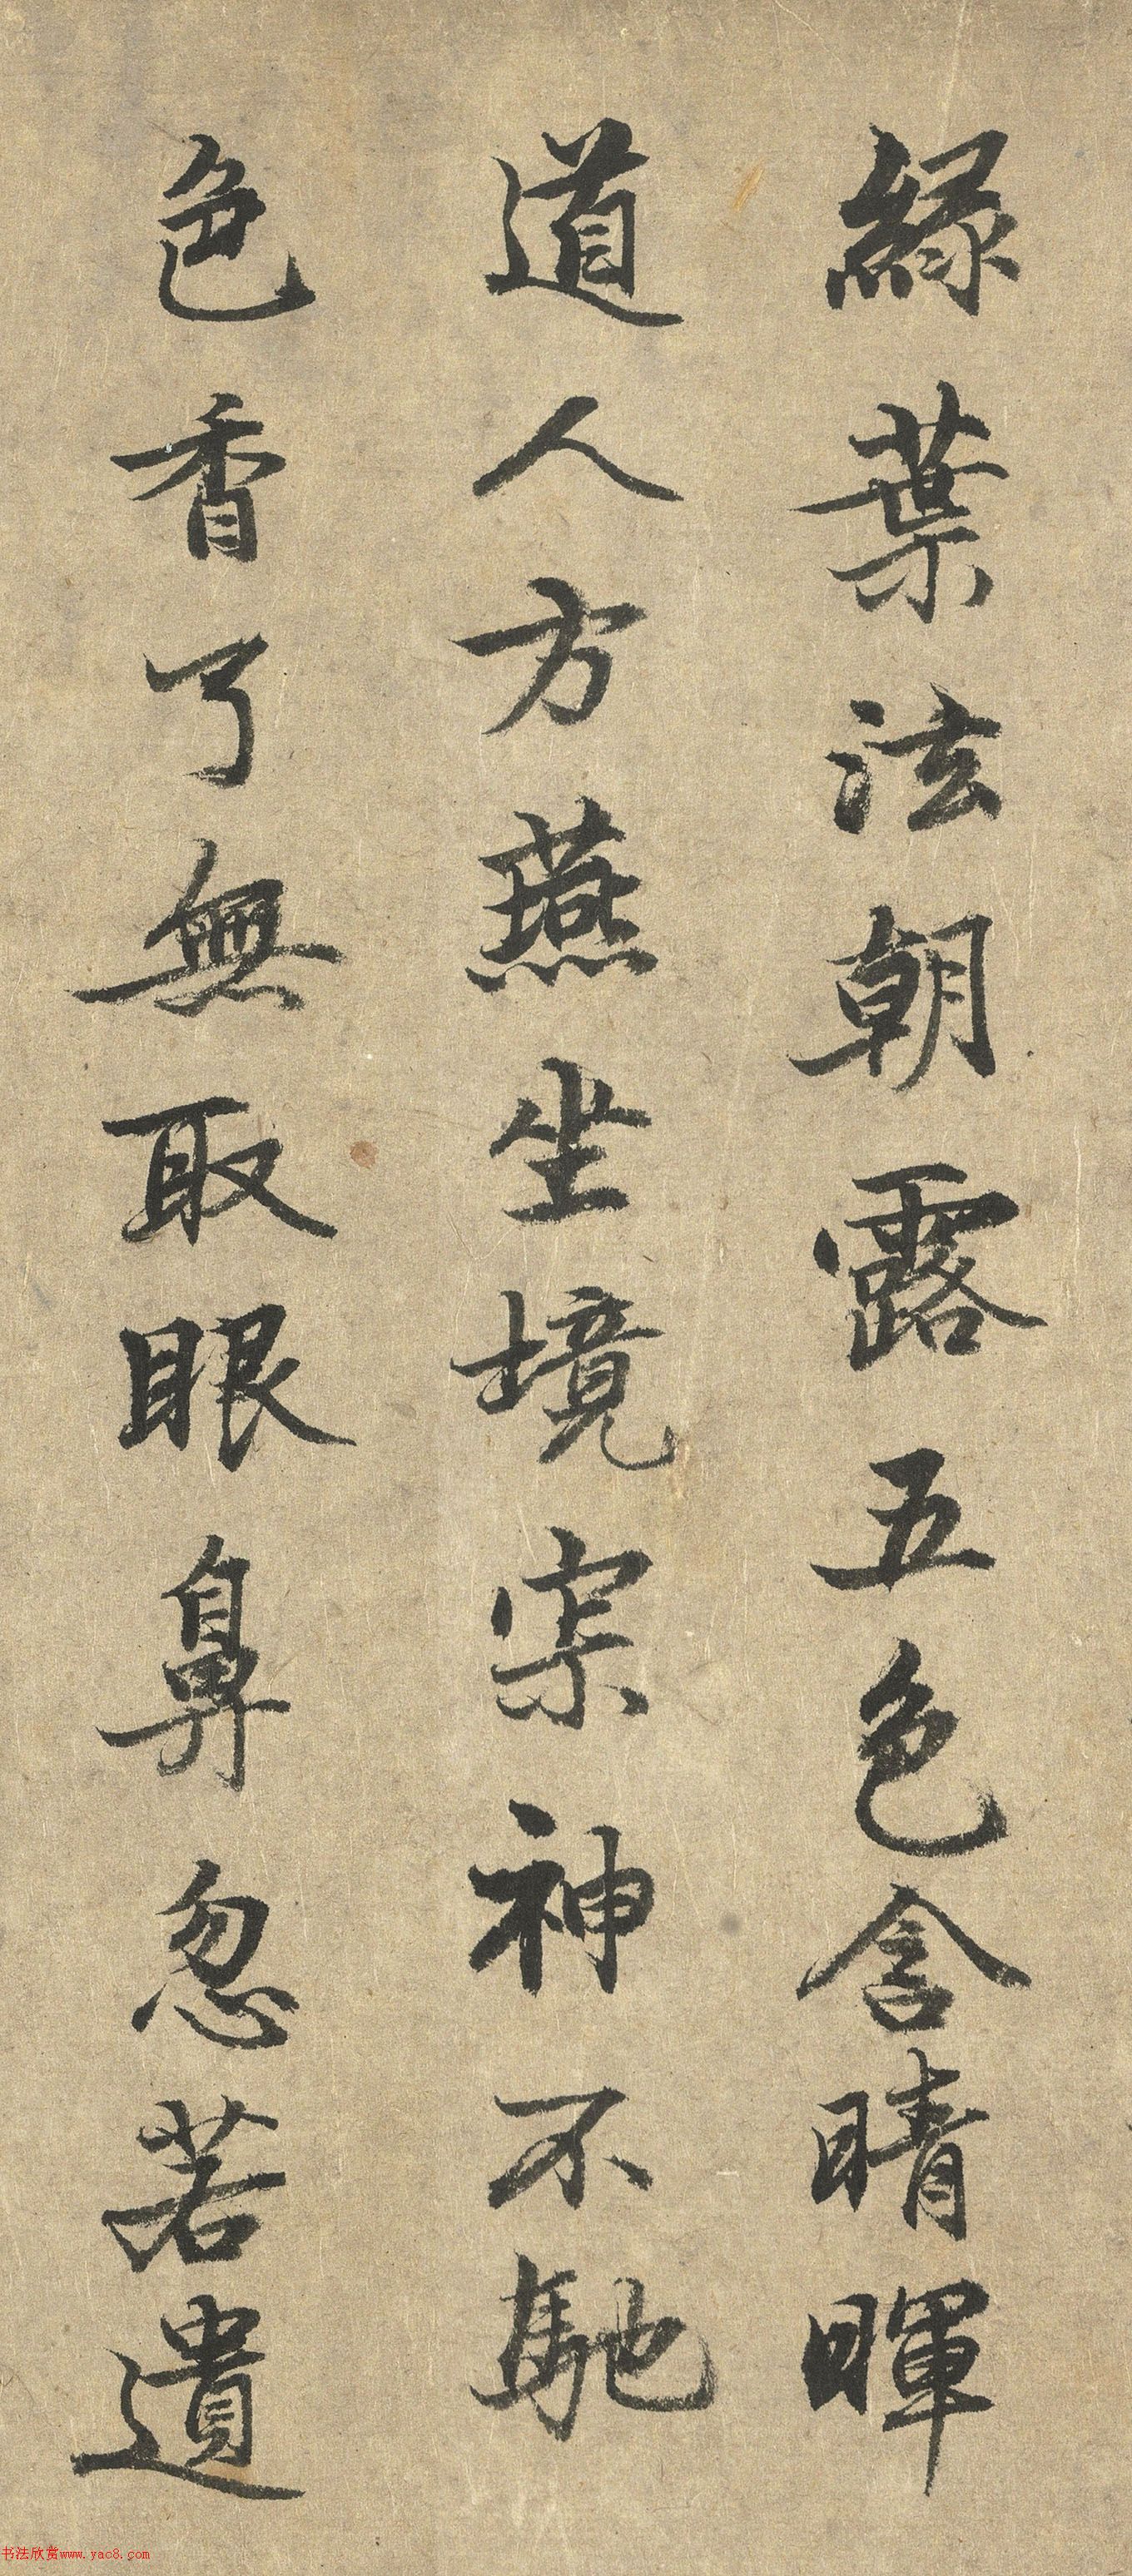 綠葉泫朝露五色含晴暉
道人方燕坐境寂神不馳
色香了無取眼鼻忽若遺
书法欣赏www.yac8.com